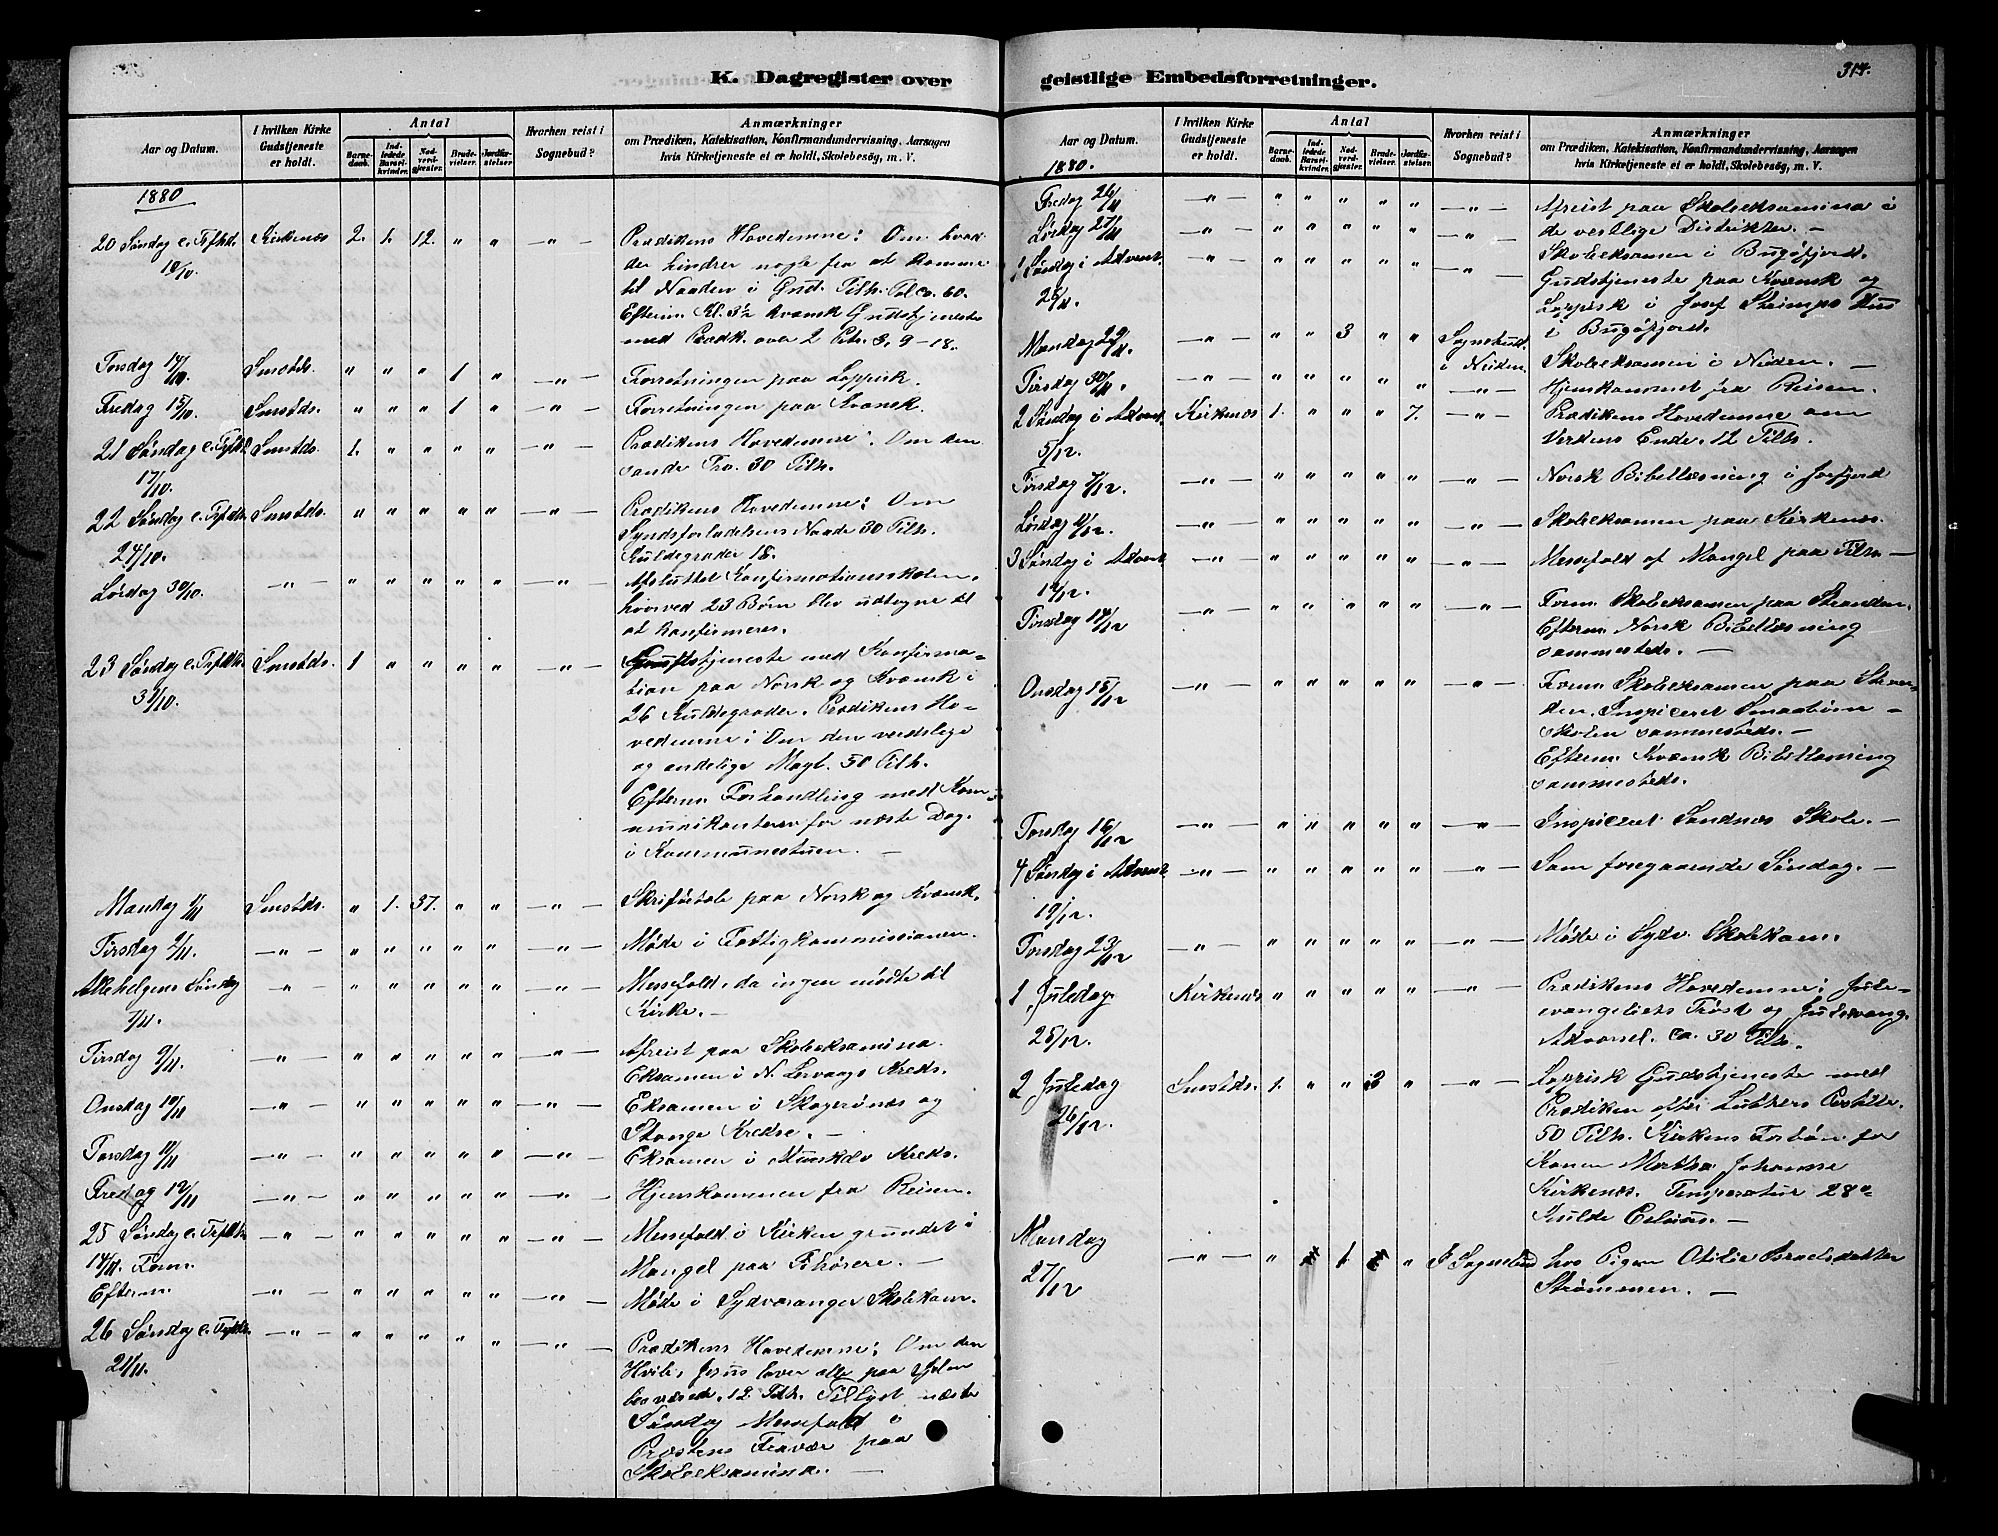 K. Dagregister over
Aar og Datum.
I hvilken Kirke
Gudstjeneste
er holdt.
Antal
Barne-
daab.
Ind-
ledede
Barsel-
kvinder.
Nad-
verd-
gjæster.
Brude-
vielser.
Jordfæ-
stelser.
Hvorhen reist i
Sognebud?
Anmærkninger
om Prædiken, Katekisation, Konfirmandundervisning, Aarsagen
hvis Kirketjeneste ei er holdt, Skolebesøg, m. V.
1880
20 Søndag e. Trfht. Kirkenæs 2. 1. 12. " " —"— Prædikens Hovedemne: Om hvad
10/10. der hindrer nogle fra at komme
til Naaden i Gud. Tilh. Tal ca. 60.
Efterm. Kl. 3½ kvænsk Gudstjeneste
med Prædk. over 2 Petr. 3, 9-18.
Torsdag 14/10. Smstds. " " " 1 " —"— Forretningen paa Lappisk.
Fredag 15/10. Smstds. " " " 1 " —"— Forretningen paa Kvænsk.
21 Søndag e. Trfht. Smstds. 1. " " " " —"— Prædikens Hovedemne: Om den
17/10. sande Tro. 30 Tilh.
22 Søndag e. Trfht. Smstds. " " " " " —"— Prædikens Hovedemne: Om
24/10. Syndsforladelsens Naade 30 Tilh.
Kuldegrader 18.
Lørdag 30/10. —"— " " " " " —"— Afsluttet Konfirmationsskolen,
hvorved 23 Børn blev udtagne til
at konfirmeres.
23 Søndag e. Trfht. Smstds. 1 " " " " —"— Gudstjeneste med Konfirma-
31/10. tion paa Norsk og Kvænsk i
26 Kuldegrader. Prædikens Ho-
vedemne: Om den verdslige
og andelige Magt. 50 Tilh.
Efterm. Forhandling med Kom-
munikanterer for næste Dag
i Kommunestuen. —
Mandag 1/11 Smstds. " 1. 37. " " —"— Skriftetale paa Norsk og Kvænsk.
Tirsdag 2/11. —"— " " " " " —"— Møde i Fattigkommissionen.
Allehelgens Søndag —"— " " " " " —"— Messefald, da ingen mødte til
7/11. Kirke. —
Tirsdag 9/11 —"— " " " " " —"— Afreist paa Skoleeksamina.
Eksamen i N. Leirvaags Kreds.
Onsdag 10/11 —"— " " " " " —"— Eksamen i Skogerønæs og
Stonge Kredse. —
Torsdag 11/11 —"— " " " " " —"— Eksamen i Munkelv Kreds.
Fredag 12/11 —"— " " " " " —"— Hjemkommen fra Reisen.
25 Søndag e. Trfht. —"— " " " " " —"— Messefald i Kirken grundet i
14/11. Form. Mangel paa Tihørere. —
Efterm. —"— " " " " " —"— Møde i Sydvaranger Skolekom.
26 Søndag e. Trfht. —"— " " " " " —"— Prædikens Hovedemne: Om den
21/11. Hvile, Jesus lover alle paa Sjælen
besværede. 12 Tilh. Tillyst næste
Søndag Messefald i
Præstens Fravær paa
Skoleeksamina. —
geistlige Embedsforretninger.
314.
Aar og Datum.
I hvilken Kirke
Gudstjeneste
er holdt.
Antal
Barne-
daab.
Ind-
ledede
Barsel-
kvinder.
Nad-
verd-
gjæster.
Brude-
vielser.
Jordfæ-
stelser.
Hvorhen reist i
Sognebud?
Anmærkninger
om Prædiken, Katekisation, Konfirmandundervisning, Aarsagen
hvis Kirketjeneste ei er holdt, Skolebesøg, m. V.
1880.
Fredag 26/11 —"— " " " " " —"— Afreist paa Skoleeksamina i
Lørdag 27/11 —"— " " " " " —"— de vestlige Distrikter. —
Skoleeksamen i Bugøfjord.
1 Søndag i Advent. —"— " " " " " —"— Gudstjeneste paa Kvænsk og
28/11. Lappisk i Josef Hus
i Bugøfjord.
Mandag 29/11. —"— " " 3 " " Sognebud Skoleeksamen i Neiden. —
i Neiden.
Tirsdag 30/11. —"— " " " " " —"— Hjemkommet fra Reisen.
2 Søndag i Advent Kirkenæs 1. " " " 7. —"— Prædikens Hovedemne om
5/12. Verdens Ende. 12 Tilh.
Tirsdag 7/12. —"— " " " " " —"— Norsk Bibellæsning i Jarfjord
Lørdag 11/12. —"— " " " " " —"— Skoleeksamen paa Kirkenæs.
3 Søndag i Advent —"— " " " " " —"— Messefald af Mangel paa Tilh. —
12/12.
Tirsdag 14/12 —"— " " " " " —"— Form. Skoleeksamen paa Stranden.
Efterm. Norsk Bibellæsning
sammesteds. —
Onsdag 15/12 —"— " " " " " —"— Form. Skoleeksamen paa Stran-
den. Inspiceret Smaabørn-
skolen sammesteds. —
Efterm. Kvænsk Bibellæsning
sammesteds.
Torsdag 16/12 —"— " " " " " —"— Inspiceret Sandnæs Skole. —
4 Søndag i Advent. —"— " " " " " —"— Som foregaaende Søndag. —
19/12.
Torsdag 23/12 —"— " " " " " —"— Møde i Sydv. Skolekom.
1 Juledag. Kirkenæs " " " " " —"— Prædikens Hovedemne: Jule-
25/12. evangeliets Trøst og Juleevang.
Advarsel. ca. 30 Tilh.
2 Juledag Smstds. 1. " " 2 " —"— Lappisk Gudstjeneste med
26/12. Prædiken efter Luthers Postille.
50 Tilh. Kirkens Forbøn for
Konen Martha Johanne
Kirkenæs. Temperatur 28°
Kulde Celsius. —
Mandag —"— " 1 " I Sognebud hos Pigen Otilie Israelsdatter
27/12 Strømmen. —